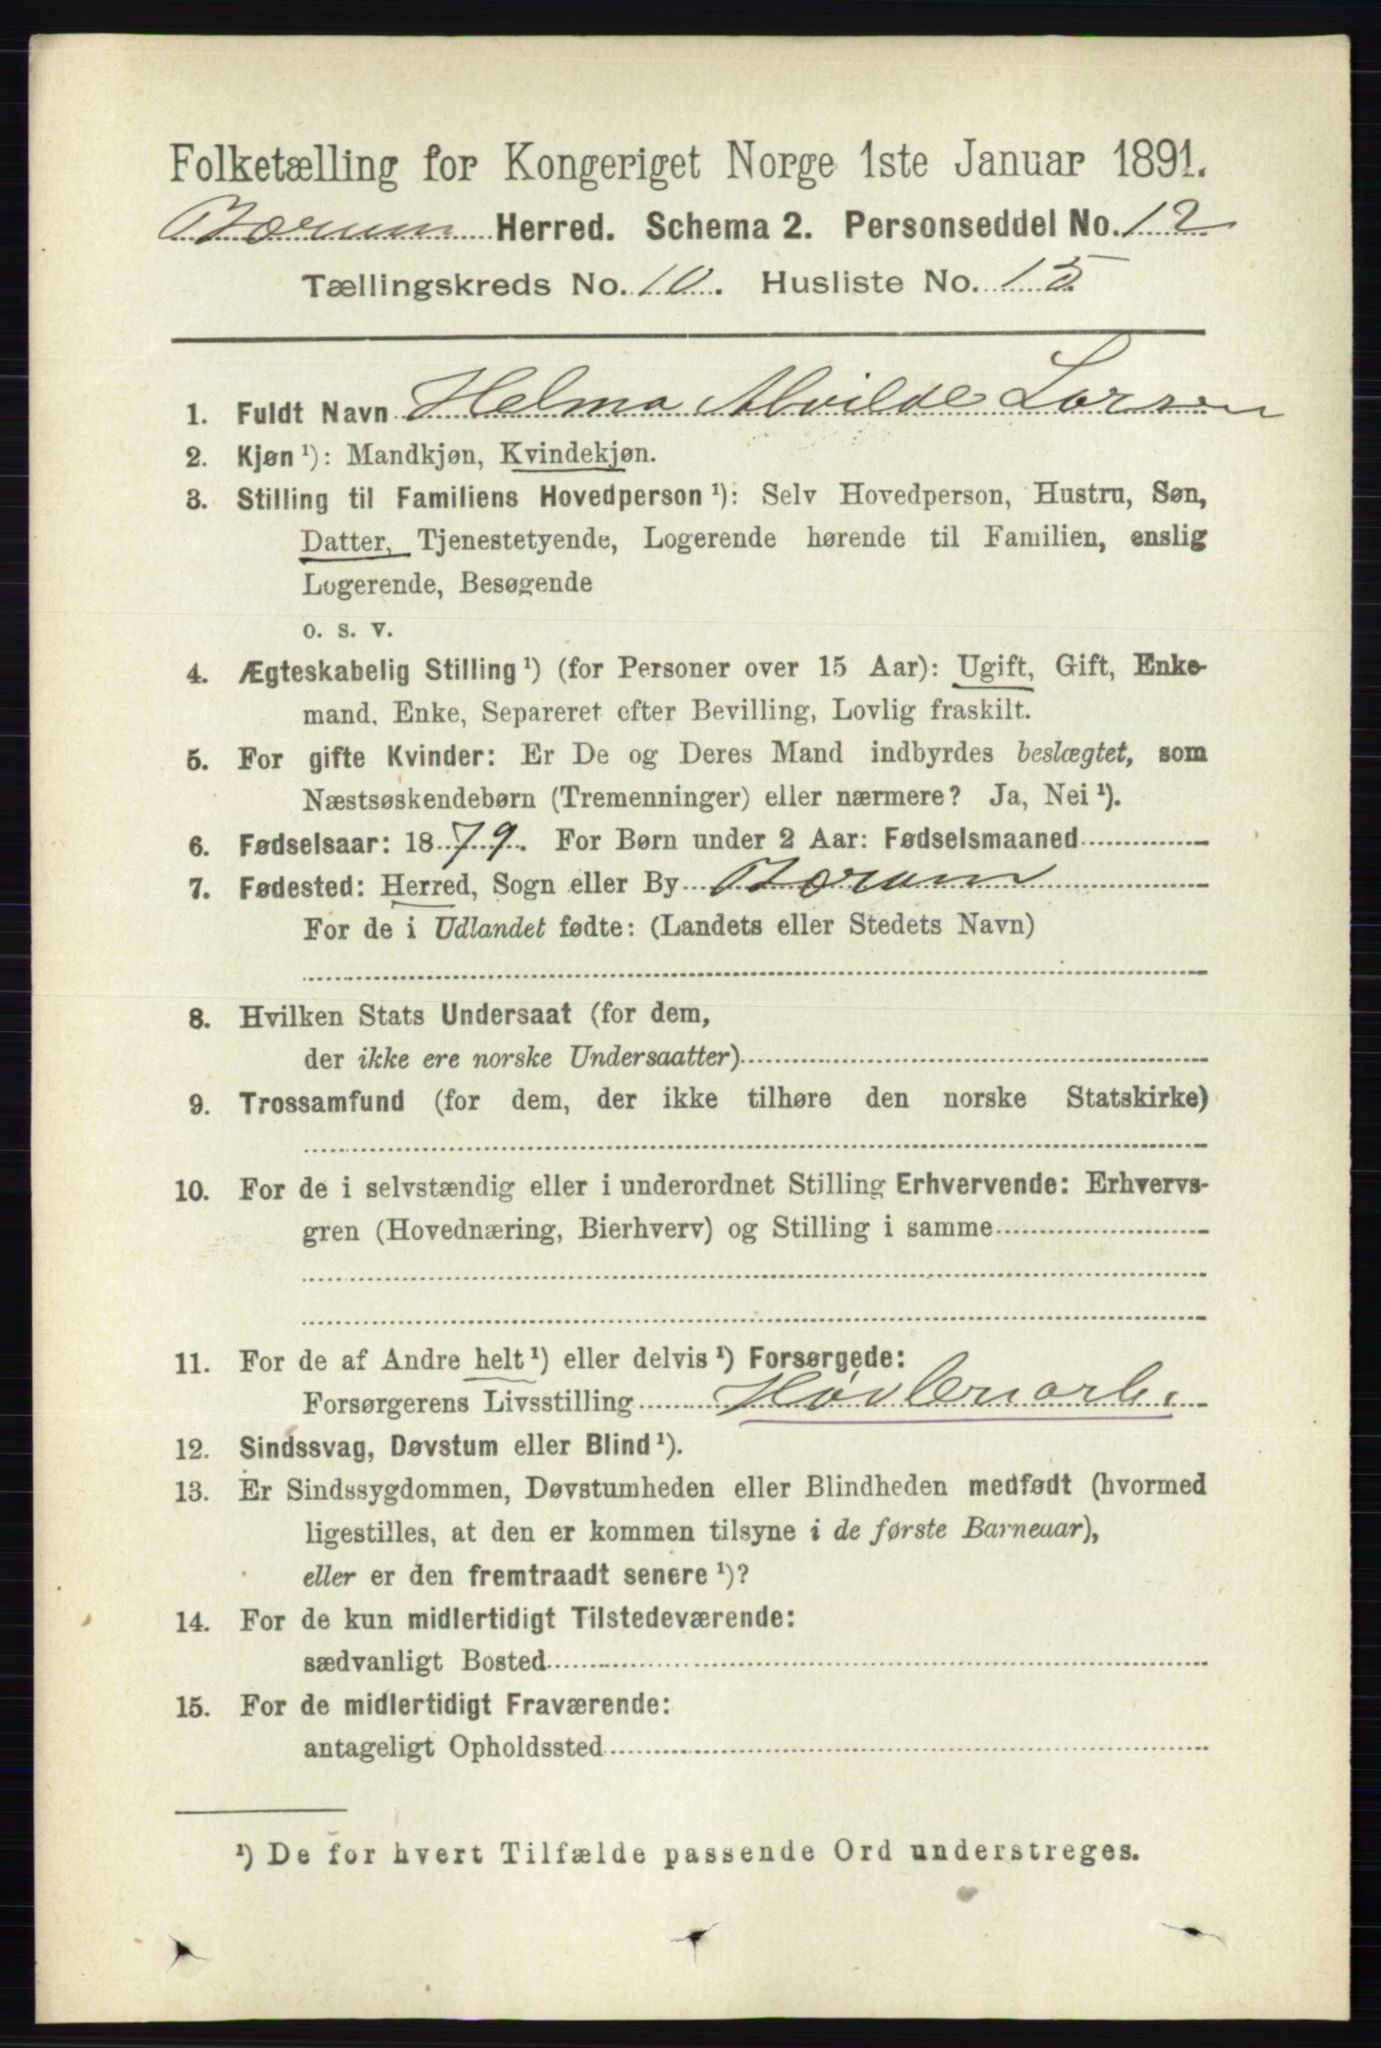 Folketælling for Kongeriget Norge 1ste Januar 1891.
Bærum Herred. Schema 2. Personseddel No. 12
Tællingskreds No. 10. Husliste No. 15.
1. Fuldt Navn Helma Alvilde Larsen
2. Kjøn ¹): Mandkjøn, Kvindekjøn.
3. Stilling til Familiens Hovedperson ¹): Selv Hovedperson, Hustru, Søn,
Datter, Tjenestetyende, Logerende hørende til Familien, enslig
Logerende, Besøgende
o. s. v.
4. Ægteskabelig Stilling ¹) (for Personer over 15 Aar): Ugift, Gift, Enke-
mand, Enke, Separeret efter Bevilling, Lovlig fraskilt.
5. For gifte Kvinder: Er De og Deres Mand indbyrdes beslægtet, som
Næstsøskendebørn (Tremenninger) eller nærmere? Ja, Nei ¹).
6. Fødselsaar: 1879. For Børn under 2 Aar: Fødselsmaaned
7. Fødested: Herred, Sogn eller By Bærum
For de i Udlandet fødte: (Landets eller Stedets Navn)
8. Hvilken Stats Undersaat (for dem,
der ikke ere norske Undersaatter)
9. Trossamfund (for dem, der ikke tilhøre den norske Statskirke)
10. For de i selvstændig eller i underordnet Stilling Erhvervende: Erhvervs-
gren (Hovednæring, Bierhverv) og Stilling i samme
11. For de af Andre helt ¹) eller delvis ¹) Forsørgede:
Forsørgerens Livsstilling Høvleriarb.
12. Sindssvag, Døvstum eller Blind ¹).
13. Er Sindssygdommen, Døvstumheden eller Blindheden medfødt (hvormed
ligestilles, at den er kommen tilsyne i de første Barneaar),
eller er den fremtraadt senere ¹)?
14. For de kun midlertidigt Tilstedeværende:
sædvanligt Bosted
15. For de midlertidigt Fraværende:
antageligt Opholdssted
¹) De for hvert Tilfælde passende Ord understreges.